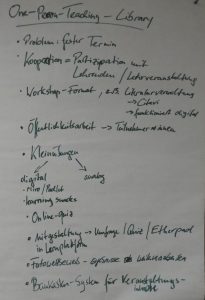 One-Person-Teaching-Library
• Problem: fester Termin
• Kooperation = Partizipation mit
Lehrenden / Lehrveranstaltung
• Workshop-Format, z.B. Literaturverwaltung
→ Citavi
→ funktioniert digital
• Öffentlichkeitsarbeit → Teilnehmer
• Kleinübungen
digital analog
• Miro / Padlet
• learning snacks
• Online-Quiz
• Mitgestaltung → Umfrage / Quiz / Etherpad
in Lernplattform
• Fotowettbewerb
• Baukasten-System für Veranstaltungs-
inhalte